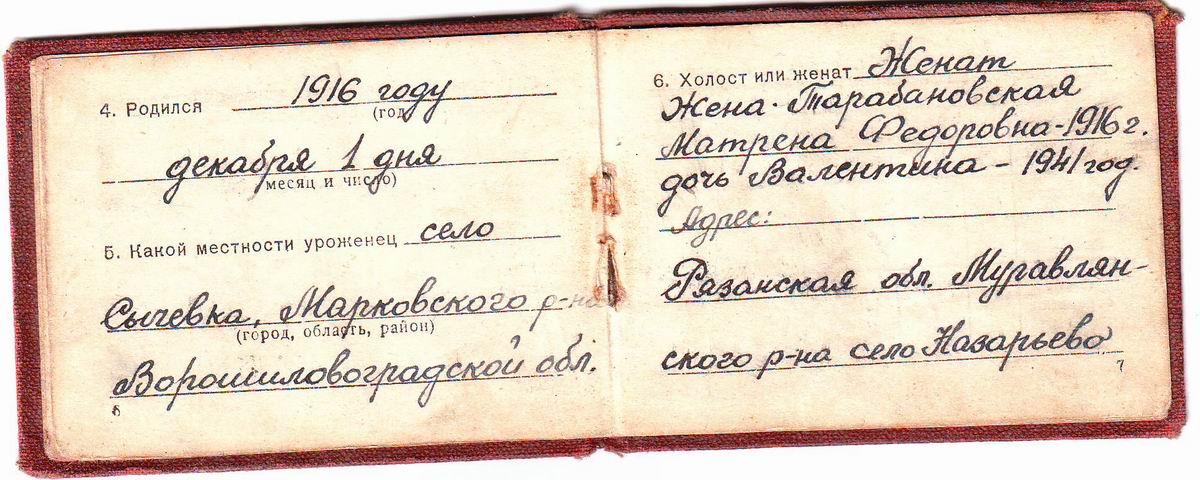 4. Родился 1916 году
(год)
декабря 1 дня
(месяц и число)
5. Какой местности уроженец село
Сычевка, Марковского р-на
(город, область, район)
Ворошиловоградской обл.
6
6. Холост или женат Женат
Жена - Тарабановская
Матрена Федоровна - 1916 г.
дочь Валентина - 1941 год.
Адрес:
Рязанская обл. Муравлян-
ского р-на село Назарьево
7